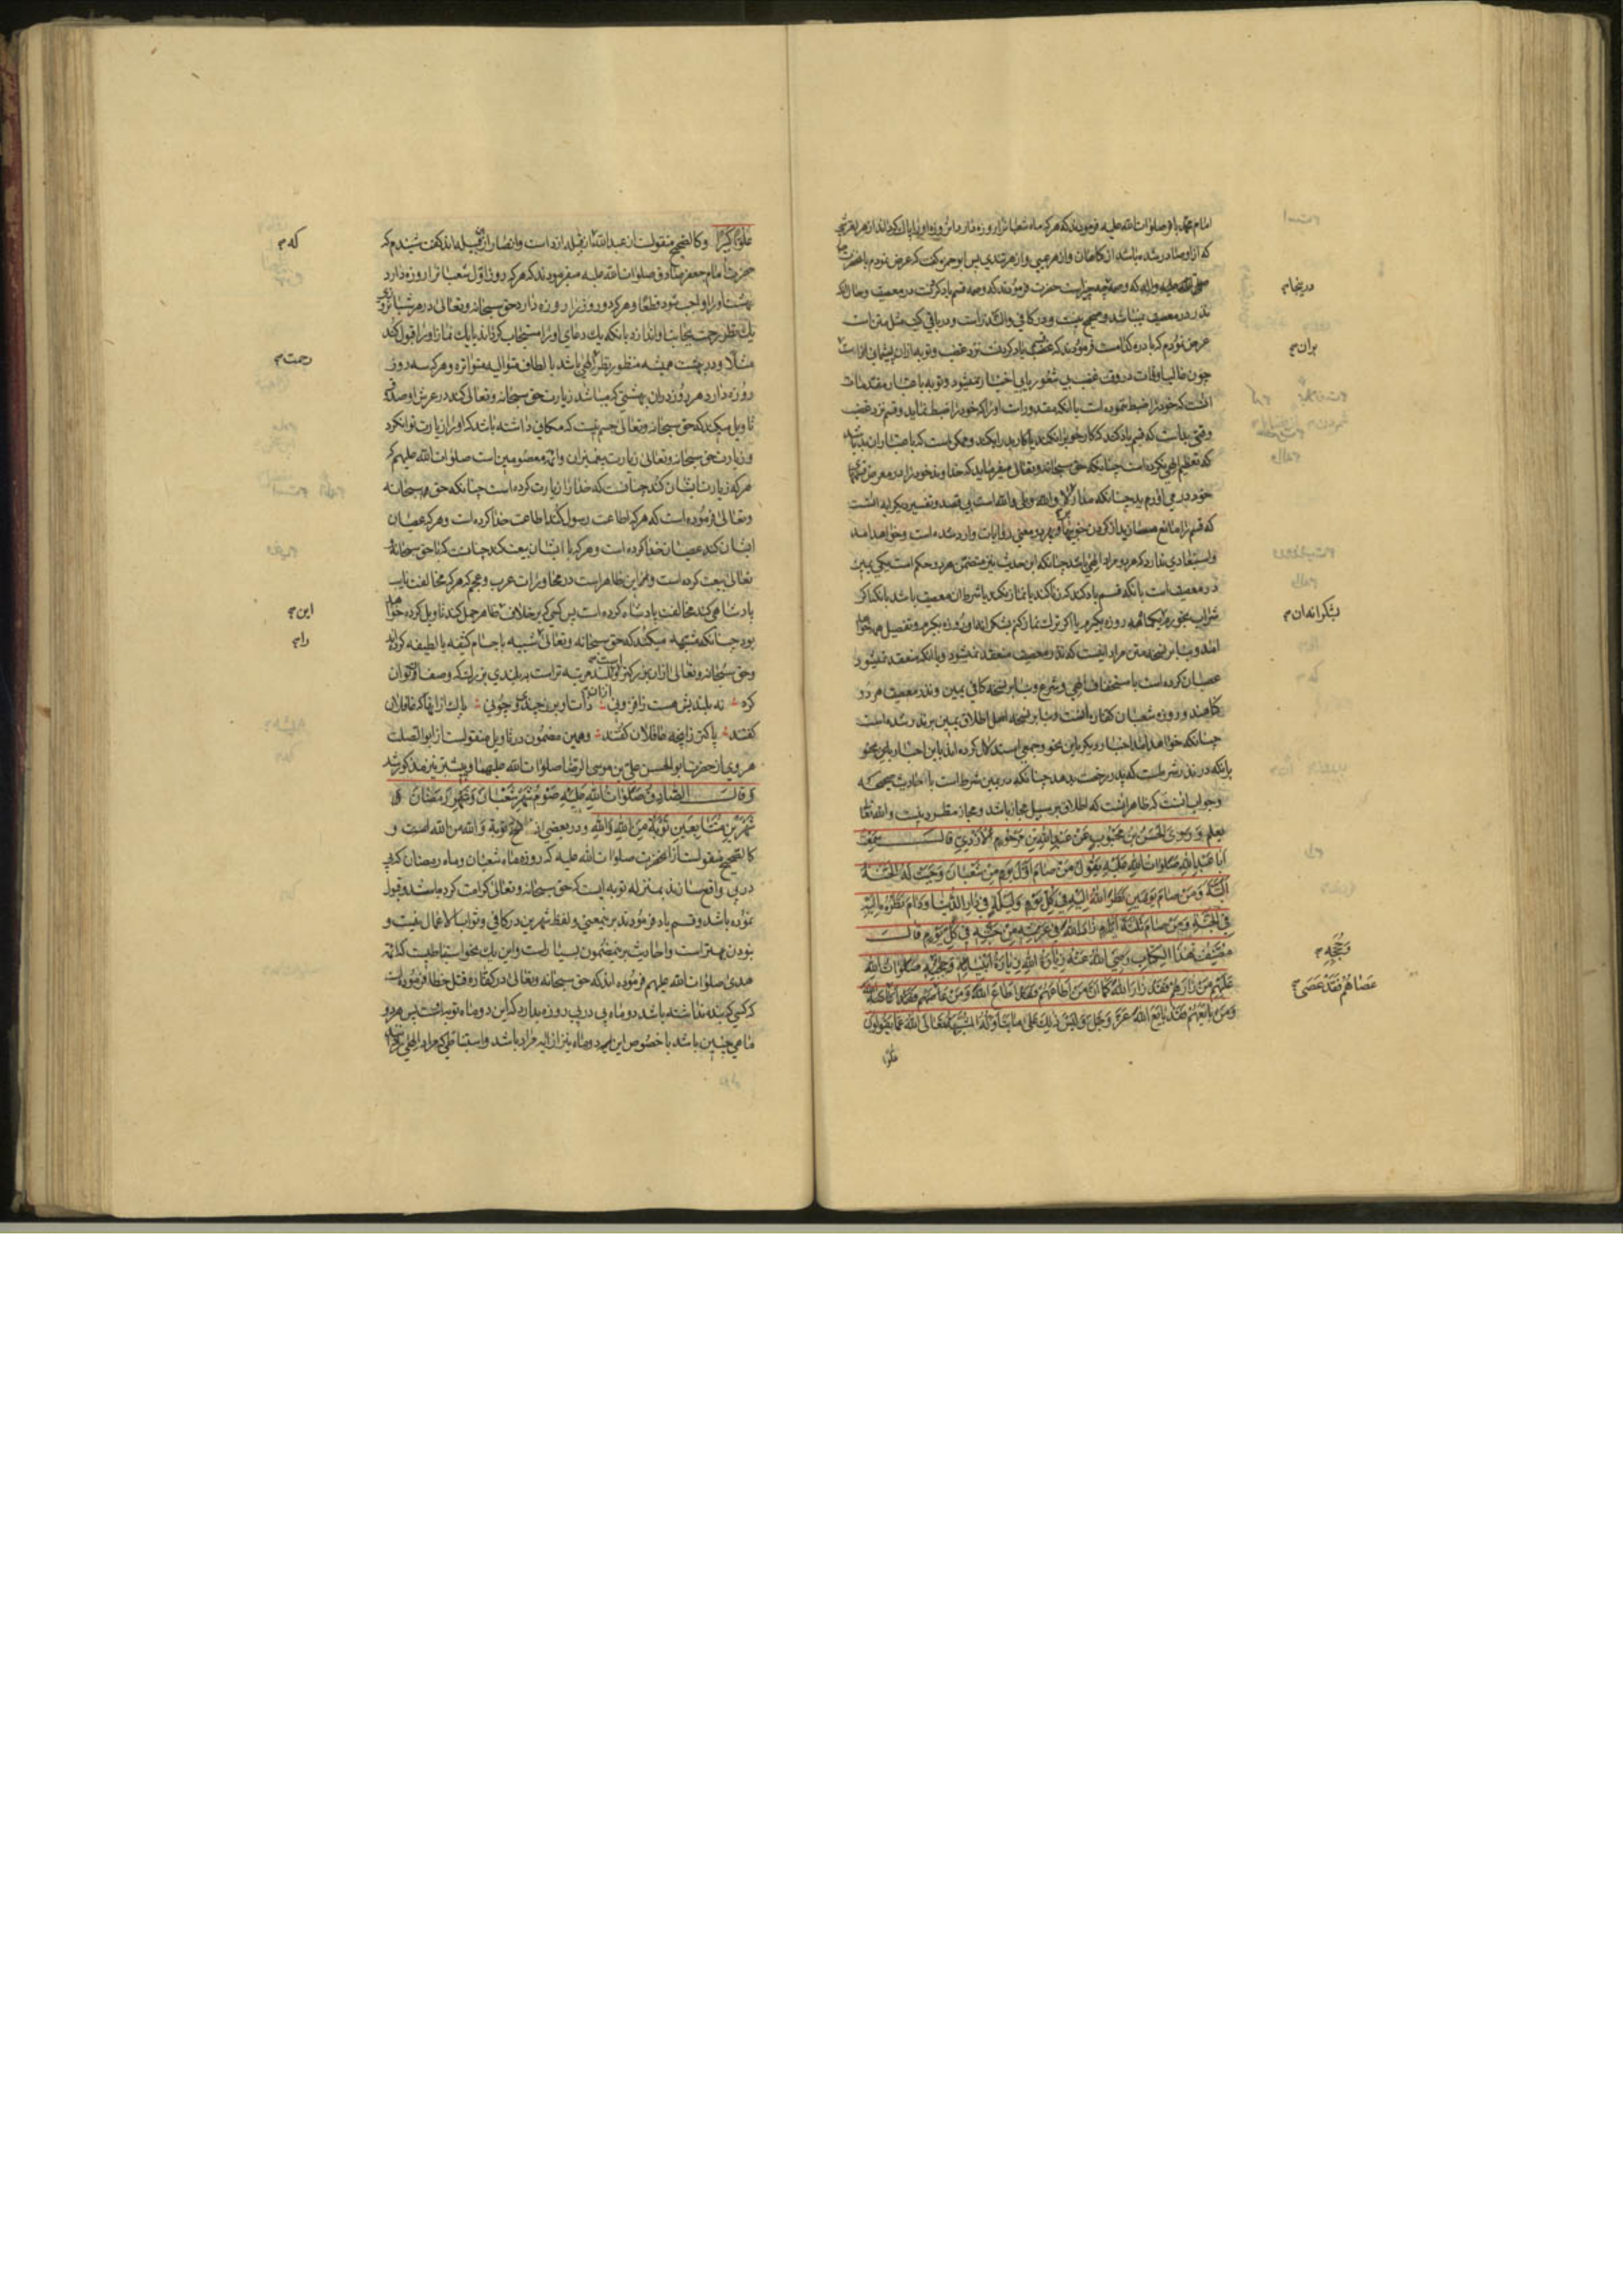 امام محمد باقر صلوات الله علیه فرمودند که هر که ماه شعبان را روزه دارد این روزه او را پاک گرداند از هر لغزشی
که ازو صادر شده باشد از کناهان و از هر عیبی و از هر تندی پس ابو حمزه کفت که عرض نمودم باحضرت
صلی الله علیه واله که وصمه چه چیز است حضرت فرمودند که وصمه قسم یاد کردنست در معصیت و حال آنکه
نذر در معصیت نمیباشد و صحیح نیست و در کافی والنذر است و در باقی کتب مثل متن است
عرض نمودم که بادره کدامست فرمودند که غضب یاد کردنست نزد غضب و توبه از ان پشیمانی از انست
چون غالب اوقات در وقت غضب بی شعور یا بی اختیار میشود و توبه باعتبار مقدمات
انست که خود را ضبط ننموده است با آنکه مقدورات او را که خود را ضبط نماید و قسم نزد غضب
وقتی بداست که قسم یاد کند که کار خوبرا نکند یا کار بد را بکند و ممکن است که باعتبار ان بد باشد
که تعظیم الهی نکرده است چنانکه حق سبحانه و تعالی میفرماید که خدا وند خود را در معرض قسمها
خود در می آورید چنانکه متعارف لا والله و بلی والله است بی قصد و تفسیر دیکر آیه انست
که قسم را مانع مسازید از کردن خوبیها و بهر دو معنی روایات وارد شده است و خواهد امد
و استبعادی ندارد که هر دو مراد الهی باشد چنانکه این حدیث نیز متضمن هر دو حکم است یکی یمین
در معصیت است بانکه قسم یاد کند که زنا کند یا نماز نکند یا شرط ان معصیت باشد بانکه اکر
شراب بخورم یکماه روزه بکیرم یا اکر ترک نماز کنم بشکرانه او روزه بکیرم و تفصیل هر دو خواهد
امد و بنا بر نسخه متن مراد اینست که نذر معصیت منعقد نمیشود و بانکه منعقد نمیشود
عصیان کرده است باستخفاف الهی و شرع و بنا بر نسخه کافی یمین و نذر معصیت هر دو
کناهند و روزه شعبان کفاره انست و بنا بر نسخه اصل اطلاق یمین بر نذر شده است
چنانکه خواهد امد اخبار دیکر باین نحو و جمعی استدلال کرده اند باین اخبار باین نحو
بانکه در نذر شرطست که پدر رخصت بدهد چنانکه در یمین شرط است با احادیث صحیحه
و جواب انست که ظاهر انست که اطلاق بر سبیل مجاز باشد و مجاز مطرد نیست والله تعالی
یعلم وَرَوَی الْحَسَنُ بْنُ مَحْبُوبٍ عَنْ عَبْدِ اللهِ بْنِ مَرْحُومٍ الْأَزْدِيِّ قَالَ سَمِعْتُ
أَبَا عَبْدِ اللهِ صَلَوَاتُ اللهِ عَلَیْهِ یَقُولُ مَنْ صَامَ أَوَّلَ یَوْمٍ مِنْ شَعْبَانَ وَجَبَتْ لَهُ الْجَنَّةُ
الْبَتَّةَ وَمَنْ صَامَ یَوْمَیْنِ نَظَرَ اللهُ إِلَیْهِ فِي کُلِّ یَوْمٍ وَلَیْلَةٍ فِي دَارِ الدُّنْیَا وَدَامَ نَظَرُهُ إِلَیْهِ
فِي الْجَنَّةِ وَمَنْ صَامَ ثَلَاثَةَ أَیَّامٍ زَارَ اللهَ فِي عَرْشِهِ مِنْ جَنَّتِهِ فِي کُلِّ یَوْمٍ قَالَ
مُصَنِّفُ هٰذَا الْکِتَابِ رَضِيَ اللهُ عَنْهُ زِیَارَةُ اللهِ زِیَارَةُ أَنْبِیَائِهِ وَحُجَجِهِ صَلَوَاتُ اللهِ
عَلَیْهِمْ مَنْ زَارَهُمْ فَقَدْ زَارَ اللهَ کَمَا أَنَّ مَنْ أَطَاعَهُمْ فَقَدْ أَطَاعَ اللهَ وَمَنْ عَصَاهُمْ فَقَدْ عَصَی اللهَ
وَمَنْ تَابَعَهُمْ فَقَدْ تَابَعَ اللهَ عَزَّ وَجَلَّ وَلَیْسَ ذٰلِكَ عَلَی مَا یَتَأَوَّلُهُ الْمُشَبِّهَةُ تَعَالَی اللهُ عَمَّا یَقُولُونَ
علوّا
درینجا م
بران م
بشکرانه ان م
وَحُجَجِهِ م
عَصَاهُمْ فَقَدْ عَصَی م
عُلُوًّا کَبِیرًا وکالصحیح منقولست از عبدالله که از قبیله ازد است وانصار از قبیله اند کفت شنیدم که
حضرت امام جعفر صادق صلوات الله علیه میفرمودند که هر که روز اول شعبان را روزه دارد
بهشت او را واجب شود قطعا و هر که دو روز را روزه دارد حق سبحانه و تعالی در هر شبانروز
یک نظر رحمت بجانب او اندازد بانکه یک دعای او را مستجاب کرداند یا یک نماز او را قبول کند
مثلا و در بهشت همیشه منظور نظر الهی باشد با الطاف متوالیه متواتره و هر که سه روز
روزه دارد هر روز در ان بهشتی که میباشد زیارت حق سبحانه و تعالی کند در عرش او صدوق
تاویل میکند که حق سبحانه و تعالی جسم نیست که مکانی داشته باشد که او را زیارت توان کرد
و زیارت حق سبحانه و تعالی زیارت پیغمبران وائمه معصومین است صلوات الله علیهم که
هر که زیارت ایشان کند چنانست که خدا را زیارت کرده است چنانکه حق سبحانه
و تعالی فرموده است که هر که اطاعت رسول کند اطاعت خدا کرده است و هر که عصیان
ایشان کند عصیان خدا کرده است و هر که با ایشان بیعت کند چنانست که با حق سبحانه و
تعالی بیعت کرده است و این ظاهر است در محاورات عرب و عجم که هر که مخالفت نایب
پادشاهی کند مخالفت پادشاه کرده است پس کسی که بر خلاف ظاهر حمل کند تاویل کرده خواهد
بود چنانکه مشبهه میکنند که حق سبحانه و تعالی شبیه باجسام کثیفه یا لطیفه کرده اند
و حق سبحانه و تعالی ازان بزرکتر و بلند مرتبه تر است به بلندی بزرک که وصف او نتوان
کرد نه بلندیش هست ز افزونی ذات او برز چندی و چونی پاک از انها که غافلان
کفتند پاکتر زانچه عاقلان کفتند و همین مضمون در تاویل منقولست از ابوالصلت
هروی از حضرت ابوالحسن علی بن موسی الرضا صلوات الله علیهما و پیشتر نیز مذکور شد
وَقَالَ الصَّادِقُ صَلَوَاتُ اللهِ عَلَیْهِ صَوْمُ شَهْرِ شَعْبَانَ وَشَهْرِ رَمَضَانَ
شَهْرَیْنِ مُتَتَابِعَیْنِ تَوْبَةٌ مِنَ اللهِ وَاللهِ و در بعضی از نسخ توبة والله من الله است و
کالصحیح منقولست از انحضرت صلوات الله علیه که روزه ماه شعبان و ماه رمضان که پی
در پی واقع سازند بمنزله توبه ایست که حق سبحانه و تعالی کرامت کرده باشد و قبول
نموده باشد و قسم یاد فرمودند بر این معنی و لفظ شهرین در کافی و ثواب الاعمال نیست و
نبودن بهتر است و احادیث بر این مضمون بسیار است و این یک نحو استنباطیست که ائمه
هدی صلوات الله علیهم فرموده اند که حق سبحانه و تعالی در کفاره قتل خطا فرموده است
که کسی که بنده نداشته باشد دو ماه پی در پی روزه بدارد که این دو ماه توبه است پس هر دو
ماهی چنین باشد یا خصوص این دو ماه نیز از آیه مراد باشد و استنباطی که مراد الهی
که م
رحمت م
این م
را م